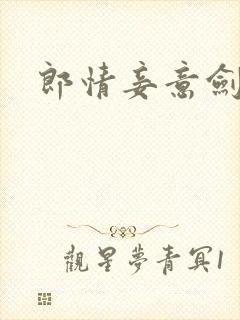 郎情妾意劍
觀星夢青冥1